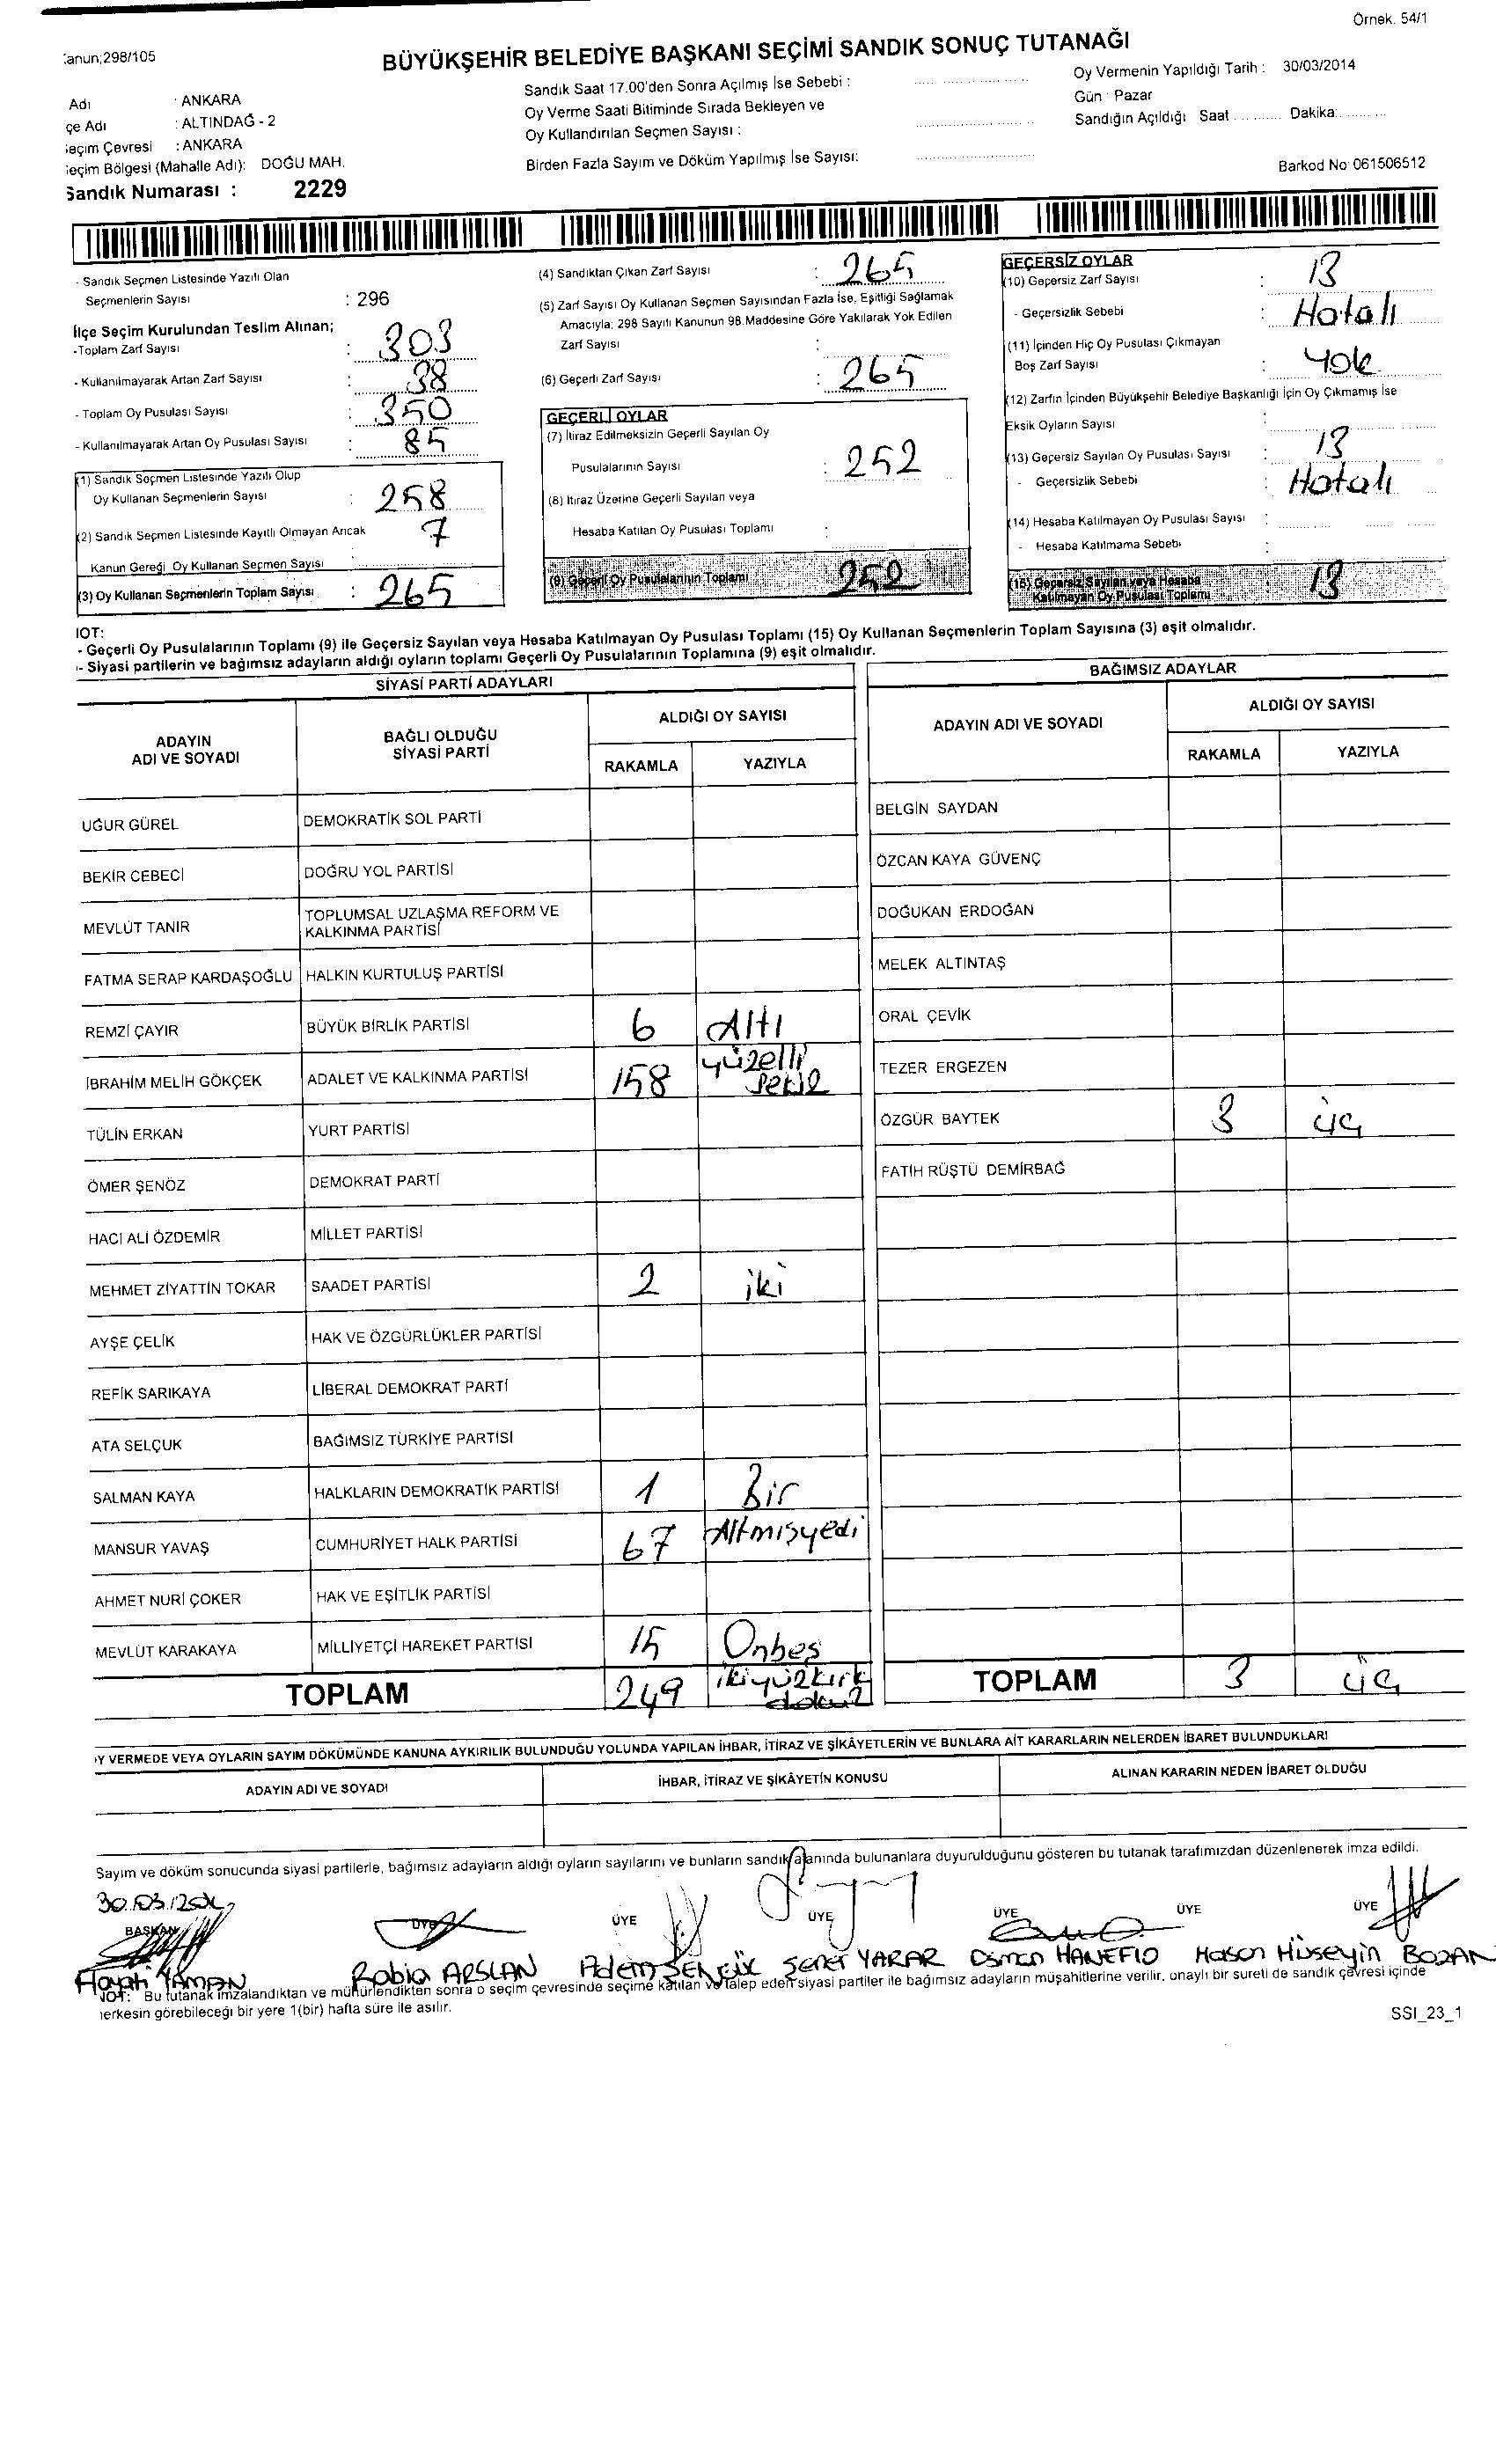 Örnek. 54/1
anun;298/105
BÜYÜKŞEHİR BELEDİYE BAŞKANI SEÇİMİ SANDIK SONUÇ TUTANAĞI
Adı : ANKARA
çe Adı : ALTINDAĞ - 2
eçim Çevresi : ANKARA
eçim Bölgesi (Mahalle Adı): DOĞU MAH.
Sandık Numarası : 2229
Sandık Saat 17.00'den Sonra Açılmış İse Sebebi :
Oy Verme Saati Bitiminde Sırada Bekleyen ve
Oy Kullandırılan Seçmen Sayısı :
Birden Fazla Sayım ve Döküm Yapılmış İse Sayısı:
Oy Vermenin Yapıldığı Tarih : 30/03/2014
Gün : Pazar
Sandığın Açıldığı Saat ........... Dakika:..........
Barkod No: 061506512
- Sandık Seçmen Listesinde Yazılı Olan
Seçmenlerin Sayısı : 296
İlçe Seçim Kurulundan Teslim Alınan;
-Toplam Zarf Sayısı : 303
- Kullanılmayarak Artan Zarf Sayısı : 38
- Toplam Oy Pusulası Sayısı : 350
- Kullanılmayarak Artan Oy Pusulası Sayısı : 85
(1) Sandık Seçmen Listesinde Yazılı Olup
Oy Kullanan Seçmenlerin Sayısı : 258
(2) Sandık Seçmen Listesinde Kayıtlı Olmayan Ancak 7
Kanun Gereği Oy Kullanan Seçmen Sayısı :
(3) Oy Kullanan Seçmenlerin Toplam Sayısı : 265
(4) Sandıktan Çıkan Zarf Sayısı : 265
(5) Zarf Sayısı Oy Kullanan Seçmen Sayısından Fazla İse, Eşitliği Sağlamak
Amacıyla; 298 Sayılı Kanunun 98.Maddesine Göre Yakılarak Yok Edilen
Zarf Sayısı :
(6) Geçerli Zarf Sayısı : 265
GEÇERLİ OYLAR
(7) İtiraz Edilmeksizin Geçerli Sayılan Oy
Pusulalarının Sayısı : 252
(8) İtiraz Üzerine Geçerli Sayılan veya
Hesaba Katılan Oy Pusulası Toplamı :
(9) Geçerli Oy Pusulalarının Toplamı 252
GEÇERSİZ OYLAR
(10) Geçersiz Zarf Sayısı : 13
- Geçersizlik Sebebi : Hatalı
(11) İçinden Hiç Oy Pusulası Çıkmayan
Boş Zarf Sayısı : Yok
(12) Zarfın İçinden Büyükşehir Belediye Başkanlığı İçin Oy Çıkmamış İse
Eksik Oyların Sayısı :
(13) Geçersiz Sayılan Oy Pusulası Sayısı : 13
- Geçersizlik Sebebi : Hatalı
(14) Hesaba Katılmayan Oy Pusulası Sayısı :
- Hesaba Katılmama Sebebi :
(15) Geçersiz Sayılan veya Hesaba
Katılmayan Oy Pusulası Toplamı 13
IOT:
- Geçerli Oy Pusulalarının Toplamı (9) ile Geçersiz Sayılan veya Hesaba Katılmayan Oy Pusulası Toplamı (15) Oy Kullanan Seçmenlerin Toplam Sayısına (3) eşit olmalıdır.
- Siyasi partilerin ve bağımsız adayların aldığı oyların toplamı Geçerli Oy Pusulalarının Toplamına (9) eşit olmalıdır.
SİYASİ PARTİ ADAYLARI
ADAYIN ADI VE SOYADI
BAĞLI OLDUĞU SİYASİ PARTİ
ALDIĞI OY SAYISI
RAKAMLA YAZIYLA
UĞUR GÜREL DEMOKRATİK SOL PARTİ
BEKİR CEBECİ DOĞRU YOL PARTİSİ
MEVLÜT TANIR TOPLUMSAL UZLAŞMA REFORM VE KALKINMA PARTİSİ
FATMA SERAP KARDAŞOĞLU HALKIN KURTULUŞ PARTİSİ
REMZİ ÇAYIR BÜYÜK BİRLİK PARTİSİ 6 Altı
İBRAHİM MELİH GÖKÇEK ADALET VE KALKINMA PARTİSİ 158 yüzelli sekiz
TÜLİN ERKAN YURT PARTİSİ
ÖMER ŞENÖZ DEMOKRAT PARTİ
HACI ALİ ÖZDEMİR MİLLET PARTİSİ
MEHMET ZİYATTİN TOKAR SAADET PARTİSİ 2 iki
AYŞE ÇELİK HAK VE ÖZGÜRLÜKLER PARTİSİ
REFİK SARIKAYA LİBERAL DEMOKRAT PARTİ
ATA SELÇUK BAĞIMSIZ TÜRKİYE PARTİSİ
SALMAN KAYA HALKLARIN DEMOKRATİK PARTİSİ 1 Bir
MANSUR YAVAŞ CUMHURİYET HALK PARTİSİ 67 Altmışyedi
AHMET NURİ ÇOKER HAK VE EŞİTLİK PARTİSİ
MEVLÜT KARAKAYA MİLLİYETÇİ HAREKET PARTİSİ 15 Onbeş
TOPLAM 249 ikiyüzkırk dokuz
BAĞIMSIZ ADAYLAR
ADAYIN ADI VE SOYADI
ALDIĞI OY SAYISI
RAKAMLA YAZIYLA
BELGİN SAYDAN
ÖZCAN KAYA GÜVENÇ
DOĞUKAN ERDOĞAN
MELEK ALTINTAŞ
ORAL ÇEVİK
TEZER ERGEZEN
ÖZGÜR BAYTEK 3 üç
FATİH RÜŞTÜ DEMİRBAĞ
TOPLAM 3 üç
Y VERMEDE VEYA OYLARIN SAYIM DÖKÜMÜNDE KANUNA AYKIRILIK BULUNDUĞU YOLUNDA YAPILAN İHBAR, İTİRAZ VE ŞİKÂYETLERİN VE BUNLARA AİT KARARLARIN NELERDEN İBARET BULUNDUKLARI
ADAYIN ADI VE SOYADI İHBAR, İTİRAZ VE ŞİKÂYETİN KONUSU ALINAN KARARIN NEDEN İBARET OLDUĞU
Sayım ve döküm sonucunda siyasi partilerle, bağımsız adayların aldığı oyların sayılarını ve bunların sandık alanında bulunanlara duyurulduğunu gösteren bu tutanak tarafımızdan düzenlenerek imza edildi.
BAŞKAN ÜYE ÜYE ÜYE ÜYE ÜYE ÜYE
Hayati YAMAN Rabia ARSLAN Adem ŞENÇİK Şeref YARAR Osman HANEFİO Hasan Hüseyin BOZAN
NOT: Bu tutanak imzalandıktan ve mühürlendikten sonra o seçim çevresinde seçime katılan ve talep eden siyasi partiler ile bağımsız adayların müşahitlerine verilir, onaylı bir sureti de sandık çevresi içinde
erkesin görebileceği bir yere 1(bir) hafta süre ile asılır.
SSI_23_1